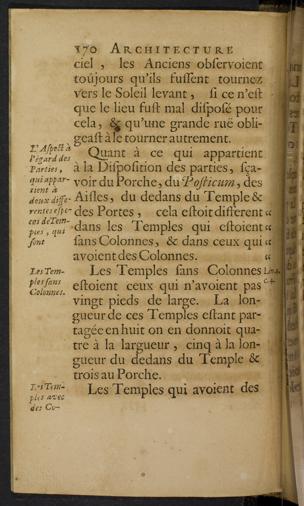 170 ARCHITECTURE
ciel, les Anciens observoient
toûjours qu'ils fussent tournez
vers le Soleil levant, si ce n'est
que le lieu fust mal disposé pour
cela, & qu'une grande ruë obli-
geast à le tourner autrement.
L'Aspect à
l'égard des
Parties,
qui appar-
tient à
deux diffe-
rentes espe-
ces de Tem-
ples, qui
sont
Quant à ce qui appartient
à la Disposition des parties, sça-
voir du Porche, du Posticum, des
Aisles, du dedans du Temple &
des Portes, cela estoit different «
dans les Temples qui estoient «
sans Colonnes, & dans ceux qui «
avoient des Colonnes. «
Les Tem-
ples sans
Colonnes.
Les Temples sans Colonnes
estoient ceux qui n'avoient pas
vingt pieds de large. La lon-
gueur de ces Temples estant par-
tagée en huit on en donnoit qua-
tre à la largueur, cinq à la lon-
gueur du dedans du Temple &
trois au Porche.
Les Tem-
ples avec
des Co-
Les Temples qui avoient des